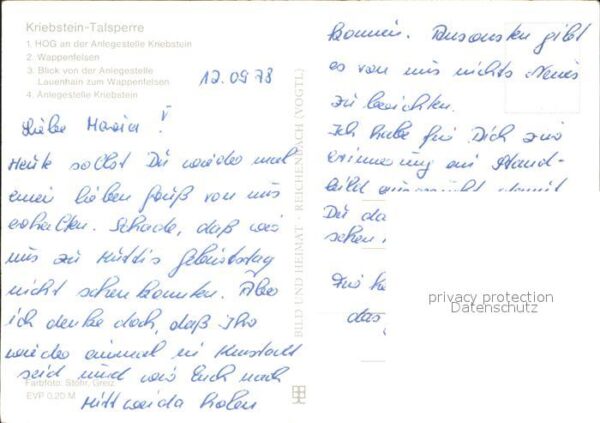 Kriebstein-Talsperre
1. HOG an der Anlegestelle Kriebstein
2. Wappenfelsen
3. Blick von der Anlegestelle
Lauenhain zum Wappenfelsen
4. Anlegestelle Kriebstein
12.09.78
Liebe Maria!
Heute sollst Du wieder mal
einen lieben Gruß von uns
erhalten. Schade, daß wir
uns zu Muttis Geburtstag
nicht sehen konnten. Aber
ich denke doch, daß Ihr
wieder einmal in
seid und wir Euch nach
Mittweida holen
Farbfoto: Stöhr, Greiz
EVP 0,20 M
BILD UND HEIMAT · REICHENBACH (VOGTL.)
können. Ansonsten gibt
es von uns nichts Neues
zu berichten.
Ich habe für Dich zur
Erinnerung ein
Du
privacy protection
Datenschutz
das